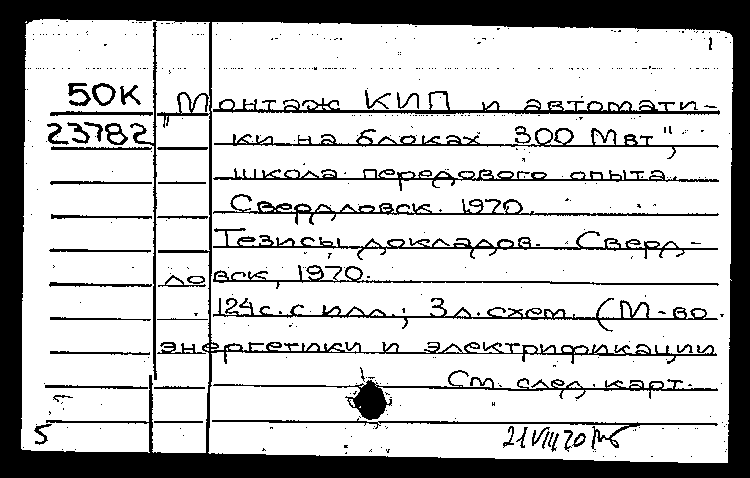 1
50К "Монтаж КИП и автомати-
23782 ки на блоках 300 Мвт",
школа передового опыта.
Свердловск. 1970.
Тезисы докладов. Сверд-
ловск, 1970.
124с. с илл.; 3 л. схем. (М-во
энергетики и электрификации
См. след. карт.
5 21 VIII 70